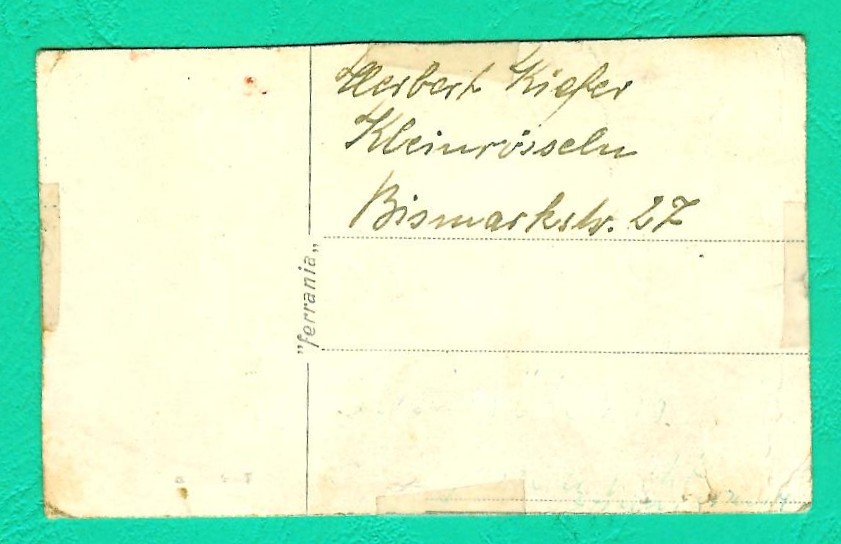 Herbert Kiefer
Kleinrösseln
Bismarkstr. 27
"ferrania"